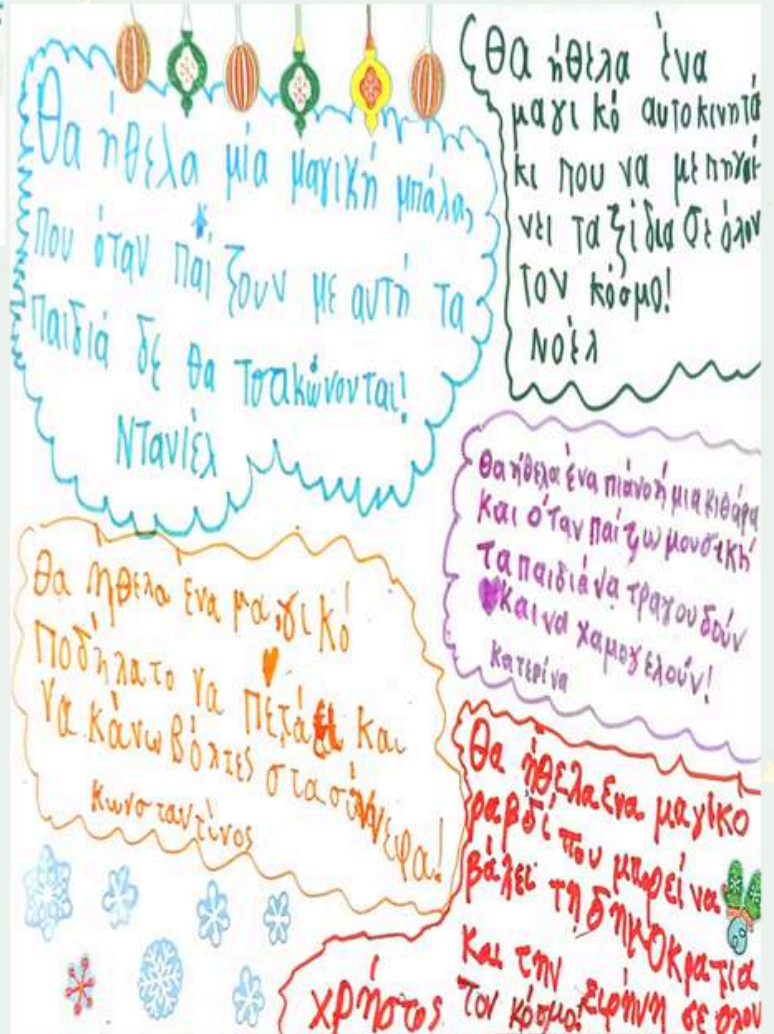 Θα ήθελα μία μαγική μπάλα,
που όταν παίζουν με αυτή τα
παιδιά δε θα τσακώνονται!
Ντανιέλ
Θα ήθελα ένα
μαγικό αυτοκινητά
κι που να με πηγαί
νει ταξίδια σε όλον
τον κόσμο!
Νοέλ
Θα ήθελα ένα πιάνο ή μια κιθάρα
και όταν παίζω μουσική
τα παιδιά να τραγουδούν
και να χαμογελούν!
Κατερίνα
Θα ήθελα ένα μαγικό
ποδήλατο να πετάει και
να κάνω βόλτες στα σύννεφα!
Κωνσταντίνος
Θα ήθελα ενα μαγικο
ραβδί που μπορεί να
βάλει τη δημοκρατία
και την ειρήνη σε όλον
τον κόσμο!
Χρήστος